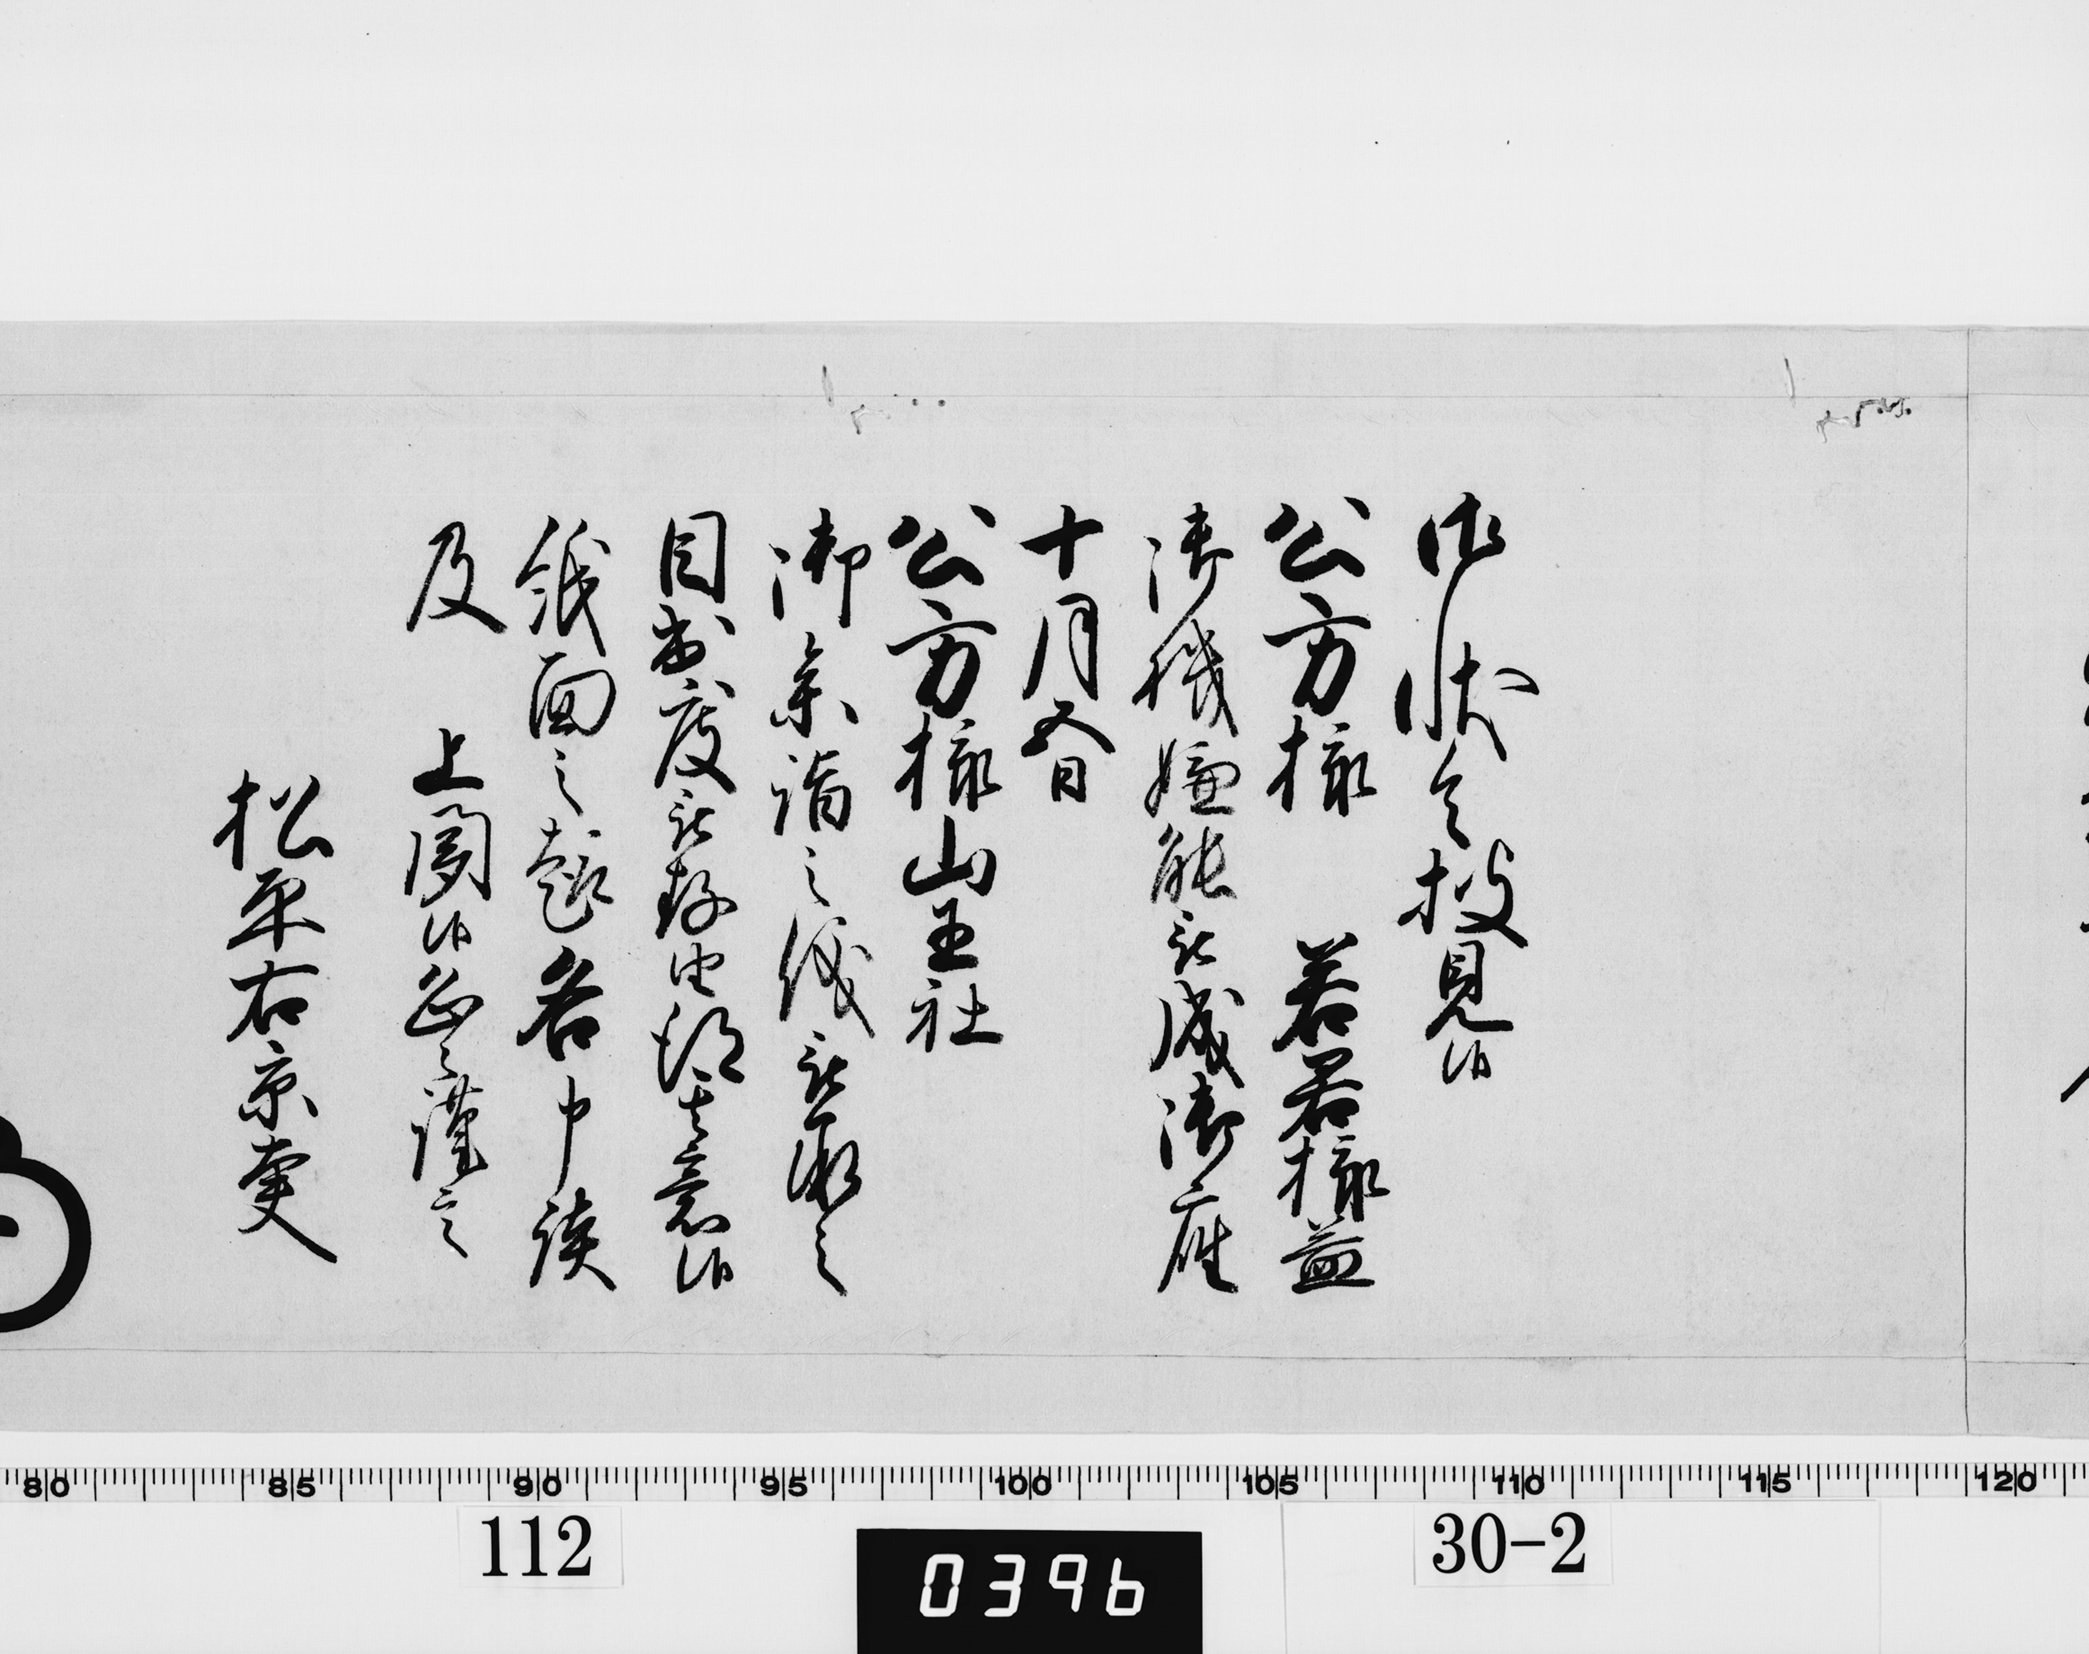 御状令披見候
公方様 若君様益
御機嫌能被成御座
十月五日
公方様山王社
御参詣之儀被承之
目出度被存由得其意候
紙面之趣各申談
及 上聞候恐々謹言
松平右京大夫
80 85 90 95 100 105 110 115 120
112
0396
30-2